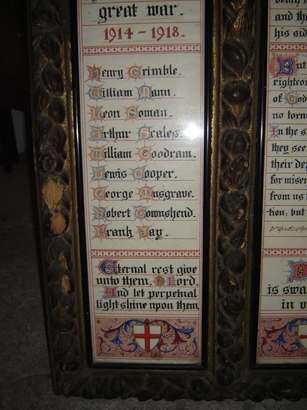 great war.
1914 - 1918.
Henry Crimble.
William Dann.
Leon Soman.
Arthur Scales.
William Goodram.
Lewis Cooper.
George Musgrave.
Robert Townshend.
Frank Jay.
Eternal rest give
unto them, O Lord,
And let perpetual
light shine upon them
and the
his sid
But
righteo
of God
no torm
In the
they see
their de
for miser
from us
tion, but
is swa
in v